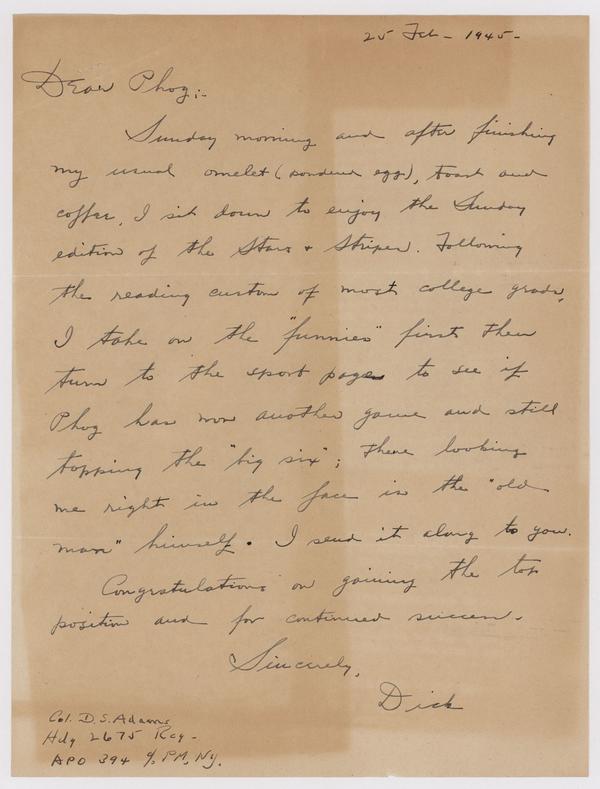 25 Feb - 1945 -
Dear Phog;-
Sunday morning and after finishing
my usual omelet (powdered eggs), toast and
coffee, I sit down to enjoy the Sunday
edition of the Stars + Stripes. Following
the reading custom of most college grads,
I take on the "funnies" first then
turn to the sport pages to see if
Phog has won another game and still
topping the "big six"; there looking
me right in the face is the "old
man" himself. I send it along to you.
Congratulations on gaining the top
position and for continued success.
Sincerely,
Dick
Col. D.S. Adams
Hdq 2675 Reg -
APO 394 % PM, NY.